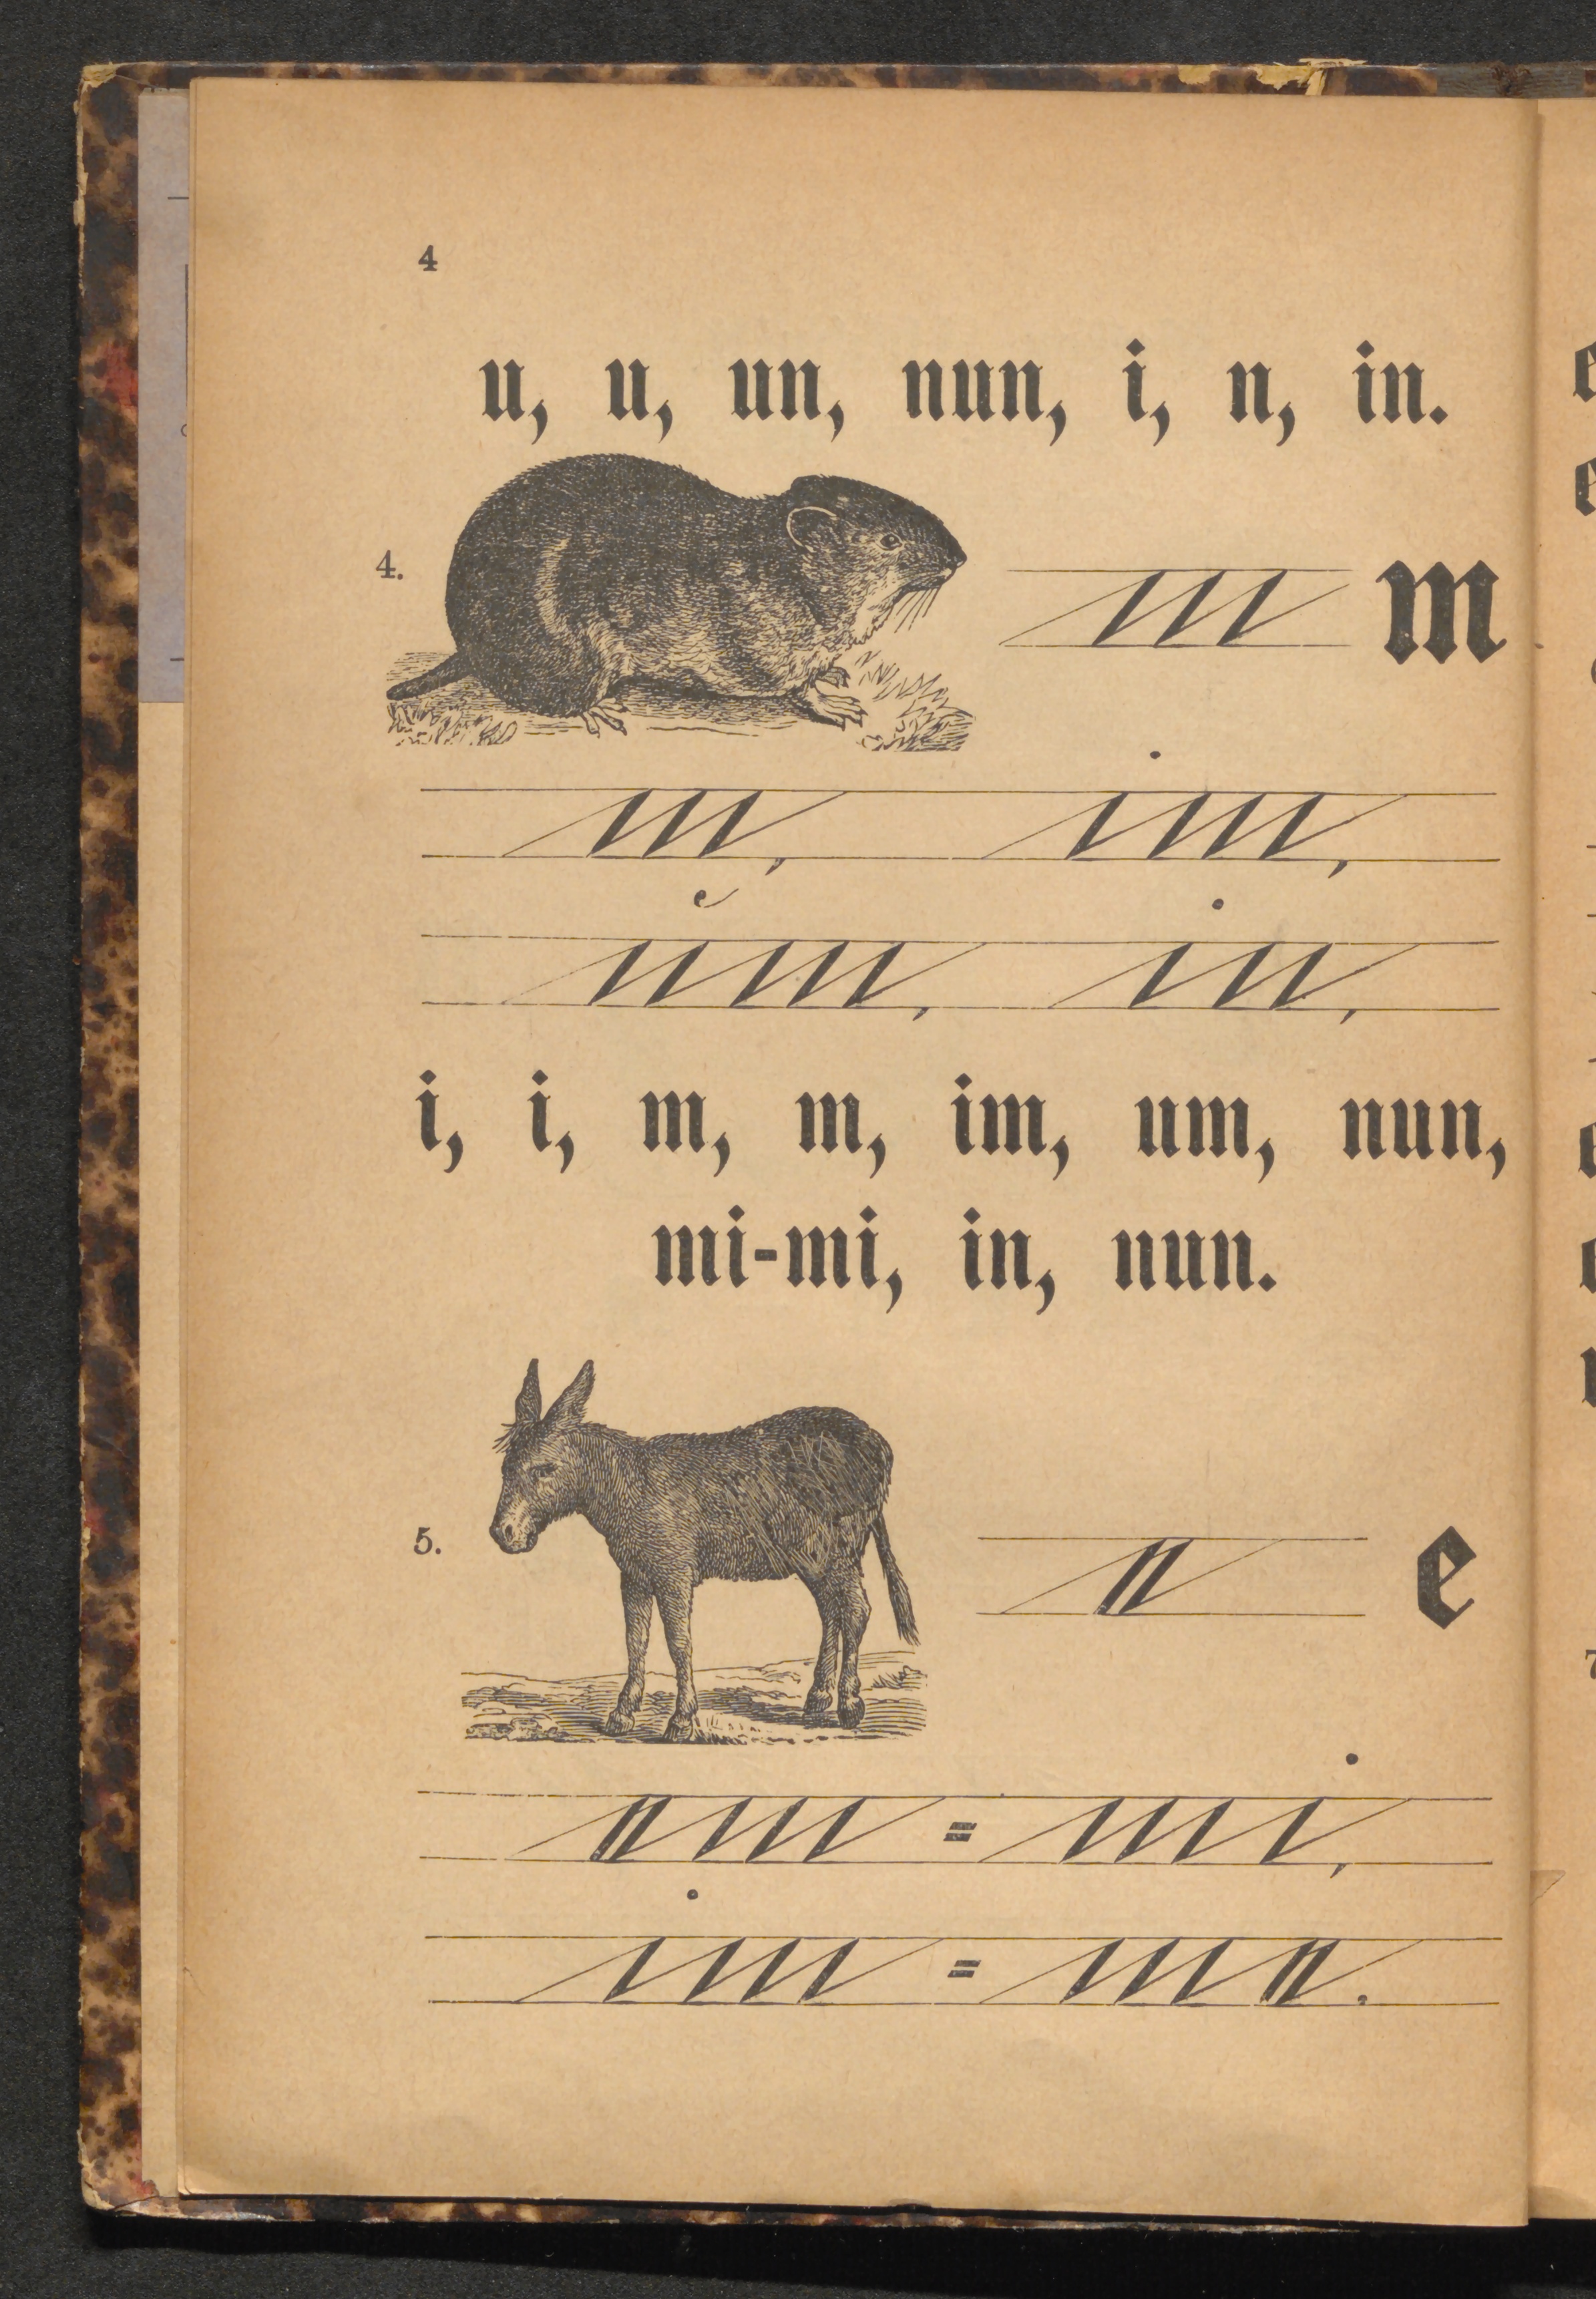 4
u, u, un, nun, i, n, in.
4. m m
m, im,
um, in,
i, i, m, m, im, um, nun,
mi-mi, in, nun.
5. e e
em=mi,
im=me.